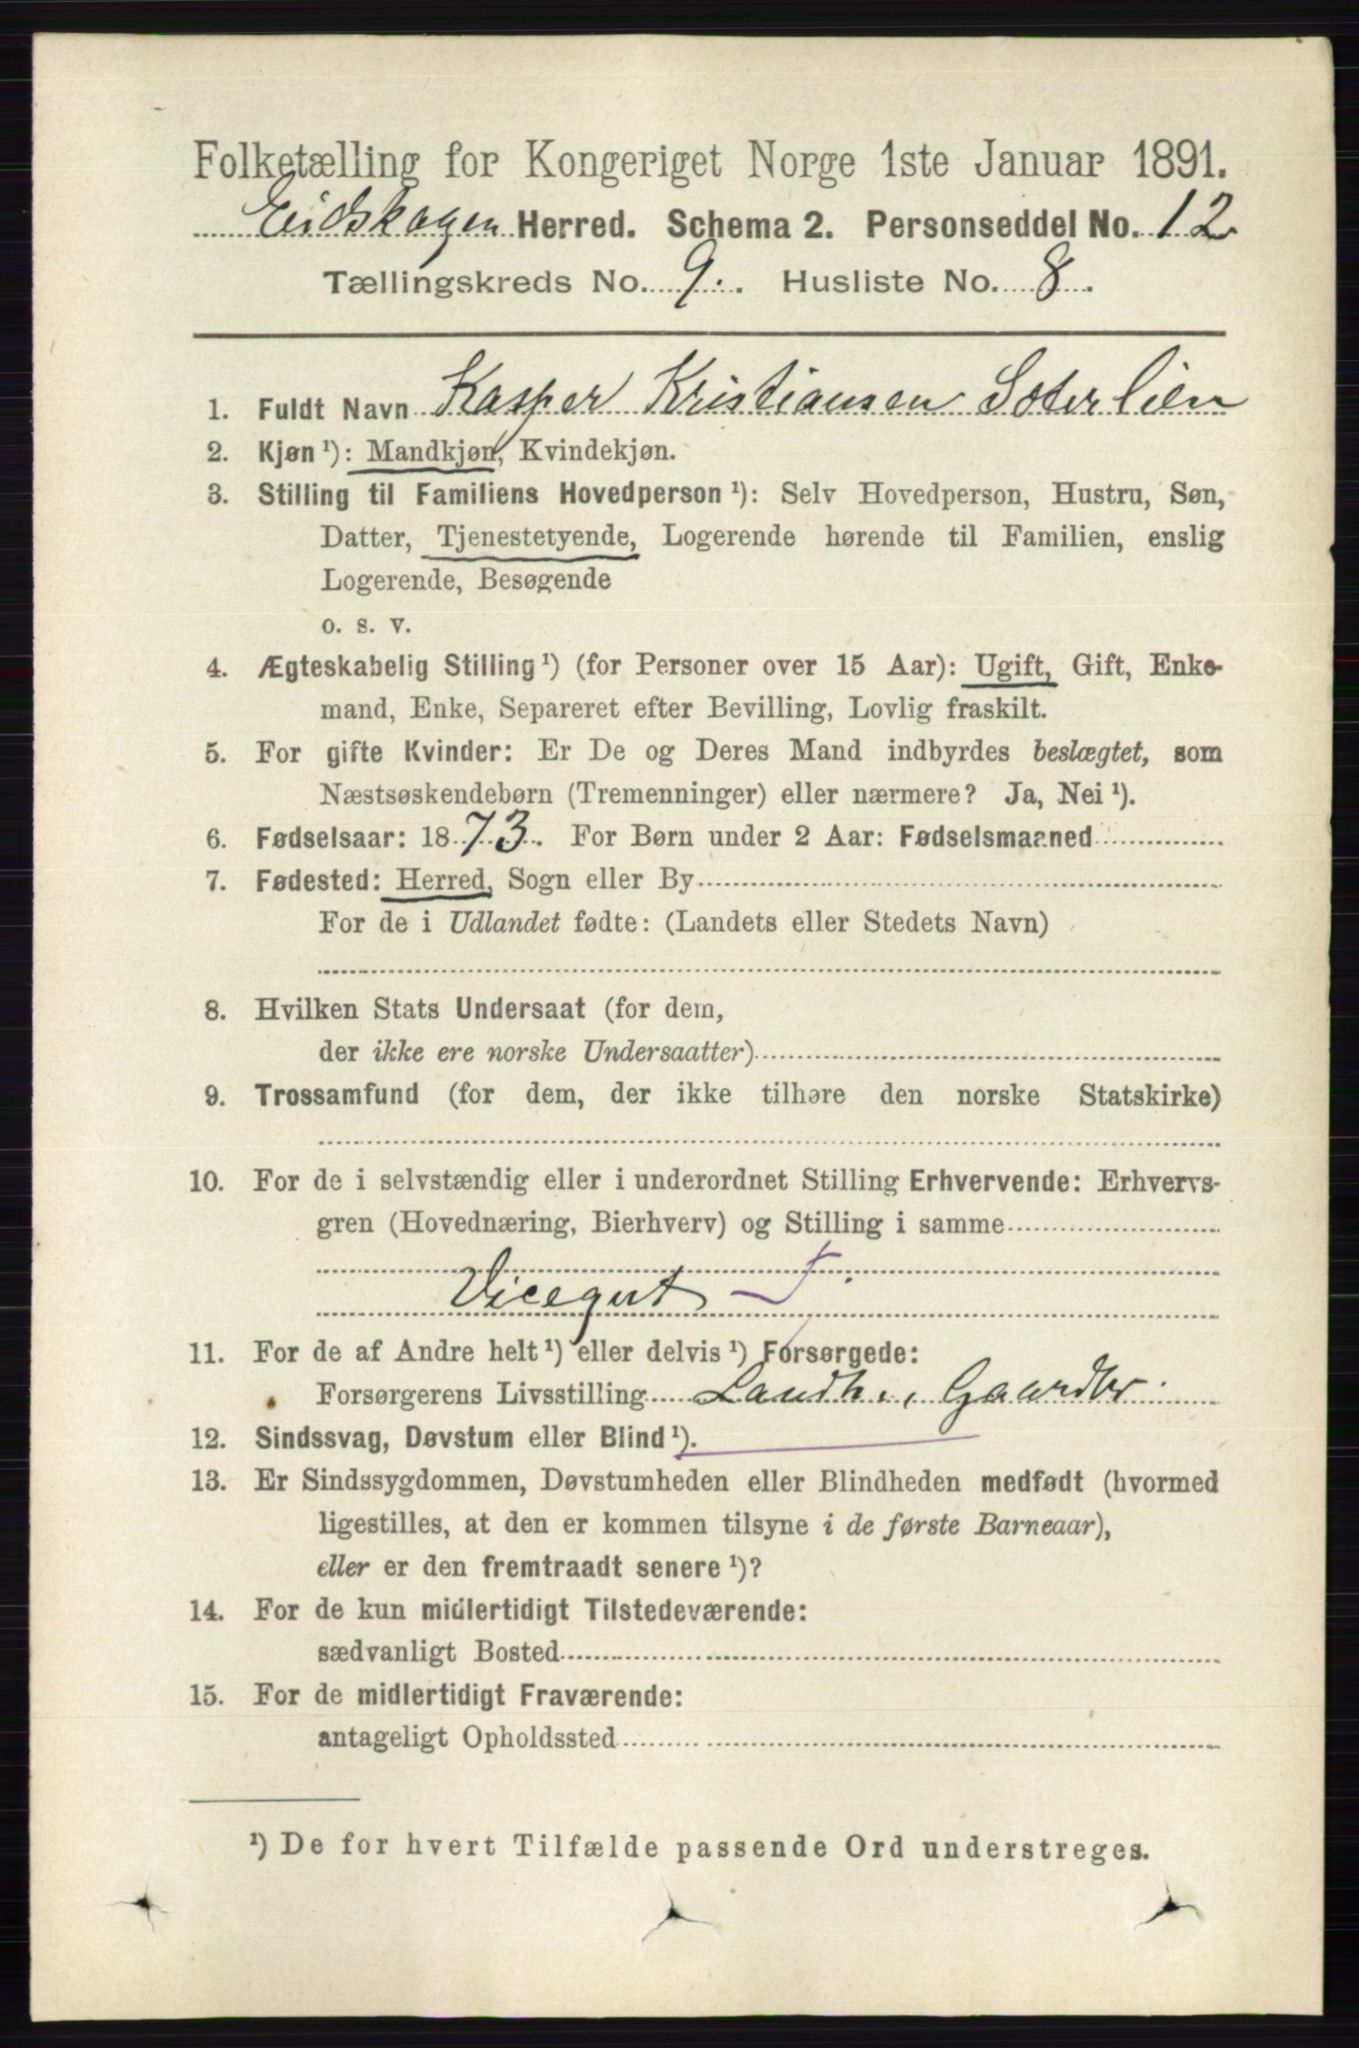 Folketælling for Kongeriget Norge 1ste Januar 1891.
Eidskogen Herred. Schema 2. Personseddel No. 12
Tællingskreds No. 9. Husliste No. 8.
1. Fuldt Navn Kasper Kristiansen Soterlien
2. Kjøn ¹): Mandkjøn, Kvindekjøn.
3. Stilling til Familiens Hovedperson ¹): Selv Hovedperson, Hustru, Søn,
Datter, Tjenestetyende, Logerende hørende til Familien, enslig
Logerende, Besøgende
o. s. v.
4. Ægteskabelig Stilling ¹) (for Personer over 15 Aar): Ugift, Gift, Enke-
mand, Enke, Separeret efter Bevilling, Lovlig fraskilt.
5. For gifte Kvinder: Er De og Deres Mand indbyrdes beslægtet, som
Næstsøskendebørn (Tremenninger) eller nærmere? Ja, Nei ¹).
6. Fødselsaar: 1873. For Børn under 2 Aar: Fødselsmaaned
7. Fødested: Herred, Sogn eller By
For de i Udlandet fødte: (Landets eller Stedets Navn)
8. Hvilken Stats Undersaat (for dem,
der ikke ere norske Undersaatter)
9. Trossamfund (for dem, der ikke tilhøre den norske Statskirke)
10. For de i selvstændig eller i underordnet Stilling Erhvervende: Erhvervs-
gren (Hovednæring, Bierhverv) og Stilling i samme
Vicegut
11. For de af Andre helt ¹) eller delvis ¹) Forsørgede:
Forsørgerens Livsstilling Landh., Gaardbr.
12. Sindssvag, Døvstum eller Blind ¹).
13. Er Sindssygdommen, Døvstumheden eller Blindheden medfødt (hvormed
ligestilles, at den er kommen tilsyne i de første Barneaar),
eller er den fremtraadt senere ¹)?
14. For de kun midlertidigt Tilstedeværende:
sædvanligt Bosted
15. For de midlertidigt Fraværende:
antageligt Opholdssted
¹) De for hvert Tilfælde passende Ord understreges.